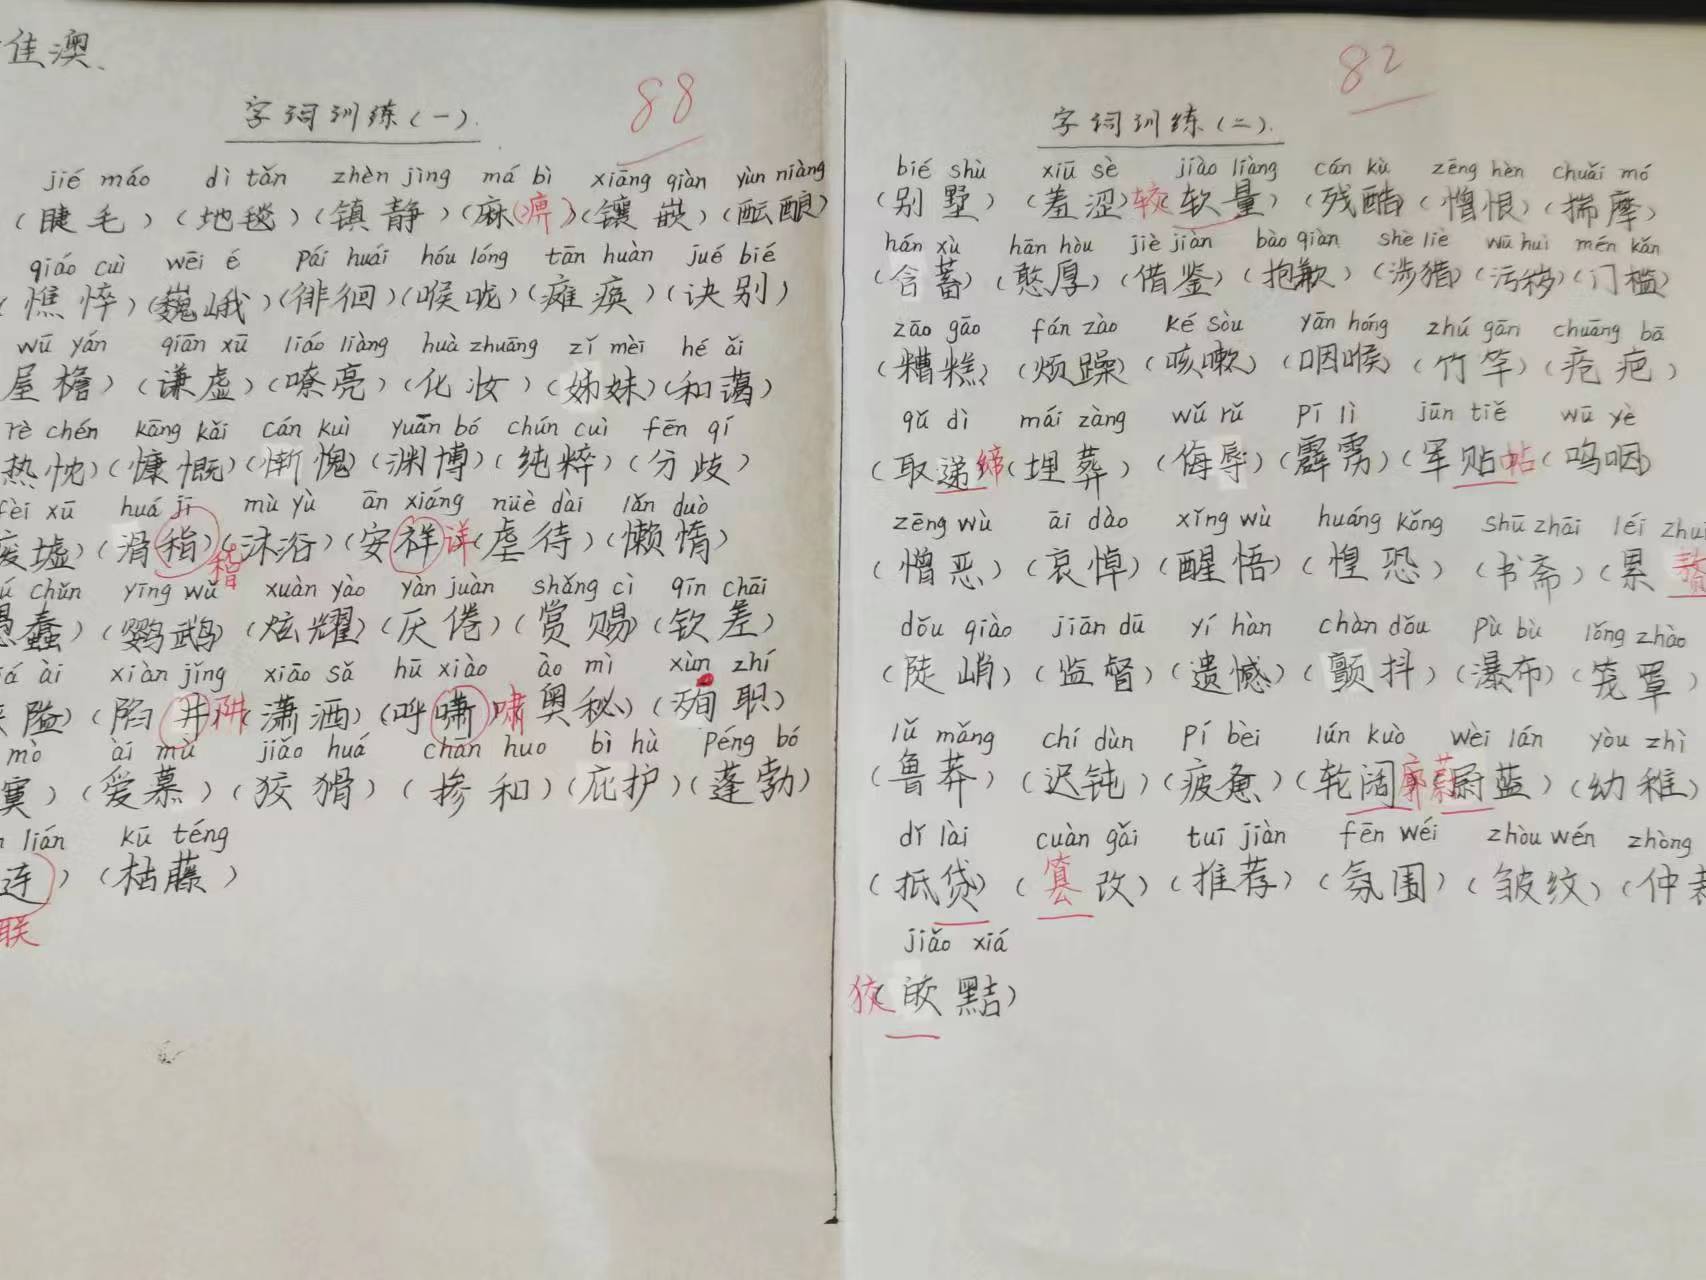 佳澳
88
字词训练(一).
jié máo dì tǎn zhèn jìng má bì xiāng qiàn yùn niàng
(睫毛)(地毯)(镇静)(麻(痹)(镶嵌)(酝酿)
qiáo cuì wēi é pái huái hóu lóng tān huàn jué bié
(憔悴)(巍峨)(徘徊)(喉咙)(瘫痪)(诀别)
wū yán qiān xū liáo liàng huà zhuāng zǐ mèi hé ǎi
屋檐)(谦虚)(嘹亮)(化妆)(姊妹)(和蔼)
rè chén kāng kǎi cán kuì yuān bó chún cuì fēn qí
热忱)(慷慨)(惭愧)(渊博)(纯粹)(分歧)
fèi xū huá jī mù yù ān xiáng nüè dài lǎn duò
废墟)(滑稽)稽(沐浴)(安祥)详(虐待)(懒惰)
chǔn yīng wǔ xuàn yào yàn juàn shǎng cì qīn chāi
愚蠢)(鹦鹉)(炫耀)(厌倦)(赏赐)(钦差)
ài xiàn jǐng xiāo sǎ hū xiào ào mì xùn zhí
隘)(陷井)阱(潇洒)(呼啸)啸(奥秘)(殉职)
mò ài mù jiǎo huá chān huo bì hù péng bó
寞)(爱慕)(狡猾)(掺和)(庇护)(蓬勃)
lián kū téng
连)(枯藤)
联
82
字词训练(二).
bié shù xiū sè jiào liàng cán kù zēng hèn chuǎi mó
(别墅)(羞涩)较(软量)(残酷)(憎恨)(揣摩)
hán xù hān hòu jiè jiàn bào qiàn shè liè wū huì mén kǎn
(含蓄)(憨厚)(借鉴)(抱歉)(涉猎)(污秽)(门槛)
zāo gāo fán zào ké sòu yān hóng zhú gān chuāng bā
(糟糕)(烦躁)(咳嗽)(咽喉)(竹竿)(疮疤)
qǔ dì mái zàng wǔ rǔ pī lì jūn tiě wū yè
(取递)缔(埋葬)(侮辱)(霹雳)(军贴)帖(呜咽)
zēng wù āi dào xǐng wù huáng kǒng shū zhāi léi zhuì
(憎恶)(哀悼)(醒悟)(惶恐)(书斋)(累赘
dǒu qiào jiān dū yí hàn chàn dǒu pù bù lǒng zhào
(陡峭)(监督)(遗憾)(颤抖)(瀑布)(笼罩)
lǔ mǎng chí dùn pí bèi lún kuò wèi lán yòu zhì
(鲁莽)(迟钝)(疲惫)(轮阔)廓蔚(尉蓝)(幼稚)
dǐ lài cuàn gǎi tuī jiàn fēn wéi zhòu wén zhòng
(抵贷)(篡改)(推荐)(氛围)(皱纹)(仲裁
jiǎo xiá
狡(皎黠)